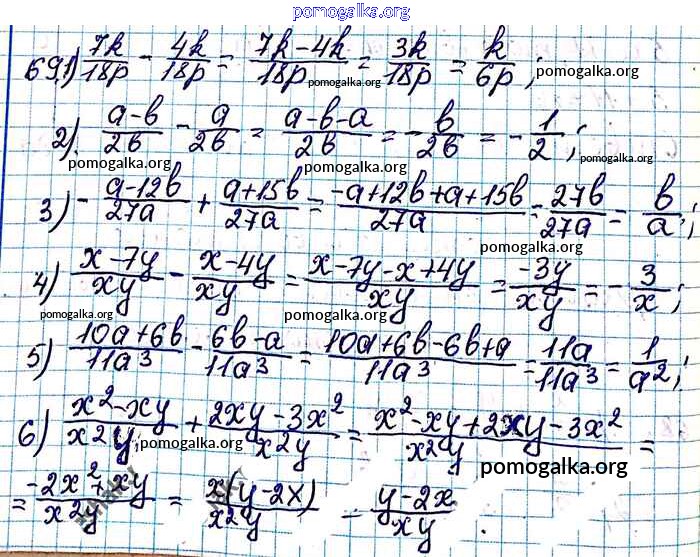 pomogalka.org
69.1) 7k/18p - 4k/18p = (7k-4k)/18p = 3k/18p = k/6p; pomogalka.org
pomogalka.org
2) (a-b)/2b - a/2b = (a-b-a)/2b = -b/2b = -1/2;
pomogalka.org pomogalka.org pomogalka.org
3) -(a-12b)/27a + (a+15b)/27a = (-a+12b+a+15b)/27a = 27b/27a = b/a;
pomogalka.org pomogalka.org
4) (x-7y)/xy - (x-4y)/xy = (x-7y-x+4y)/xy = -3y/xy = -3/x;
pomogalka.org pomogalka.org
5) (10a+6b)/11a³ - (6b-a)/11a³ = (10a+6b-6b+a)/11a³ = 11a/11a³ = 1/a²;
pomogalka.org
6) (x²-xy)/x²y + (2xy-3x²)/x²y = (x²-xy+2xy-3x²)/x²y =
pomogalka.org pomogalka.org
= (-2x²+xy)/x²y = x(y-2x)/x²y = (y-2x)/xy.